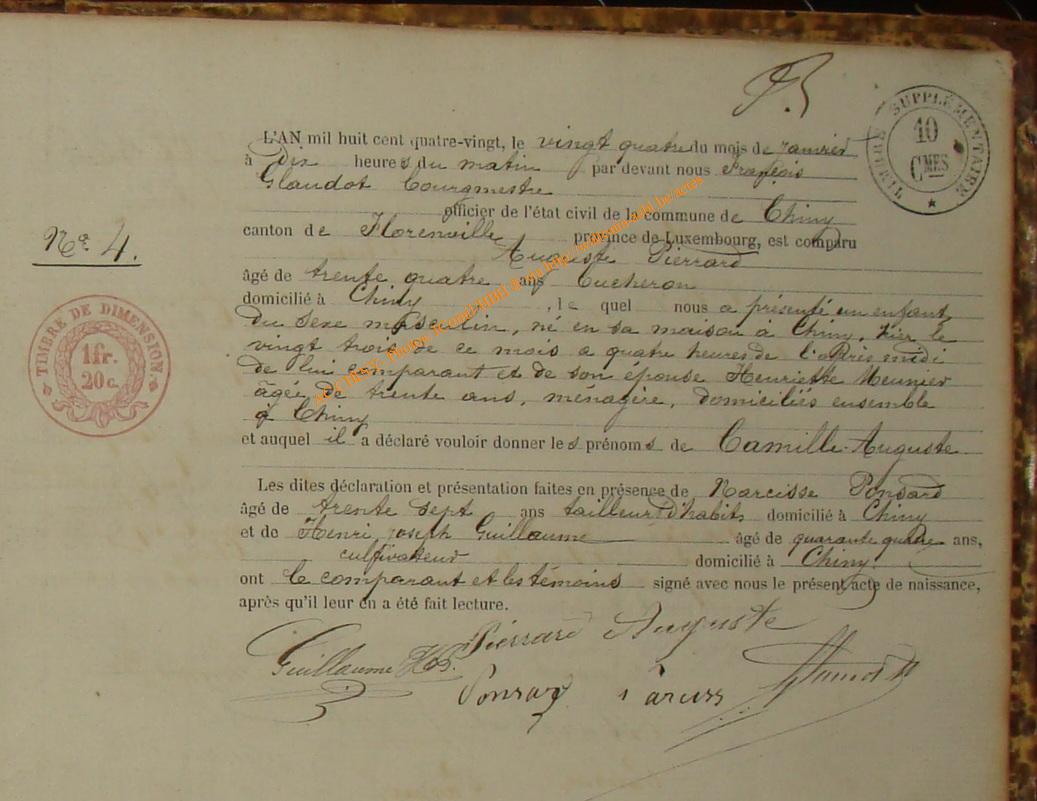 TIMBRE SUPPLÉMENTAIRE
10
CMES
L'AN mil huit cent quatre-vingt, le vingt quatre du mois de Janvier
à dix heures du matin par devant nous François
Glaudot Bourgmestre
officier de l'état civil de la commune de Chiny
canton de Florenville province de Luxembourg, est comparu
Auguste Pierrard
Nº 4.
âgé de trente quatre ans Bucheron
domicilié à Chiny, le quel nous a présenté un enfant
du sexe masculin, né en sa maison à Chiny, hier le
vingt trois de ce mois a quatre heures de l'après midi
de lui comparant et de son épouse Henriette Meunier
âgée de trente ans, ménagère, domiciliés ensemble
à Chiny
TIMBRE DE DIMENSION
1fr.
20c.
et auquel il a déclaré vouloir donner les prénoms de Camille-Auguste
Les dites déclaration et présentation faites en présence de Narcisse Ponsard
âgé de trente sept ans tailleur d'habits domicilié à Chiny
et de Henri Joseph Guillaume âgé de quarante quatre ans,
cultivateur domicilié à Chiny.
ont le comparant et les témoins signé avec nous le présent acte de naissance,
après qu'il leur en a été fait lecture.
Pierrard Auguste
Guillaume